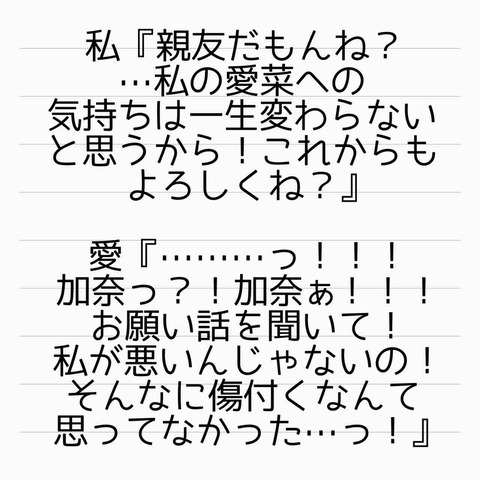 私『親友だもんね？
…私の愛菜への
気持ちは一生変わらない
と思うから！これからも
よろしくね？』
愛『………っ！！！
加奈っ？！加奈ぁ！！！
お願い話を聞いて！
私が悪いんじゃないの！
そんなに傷付くなんて
思ってなかった…っ！』